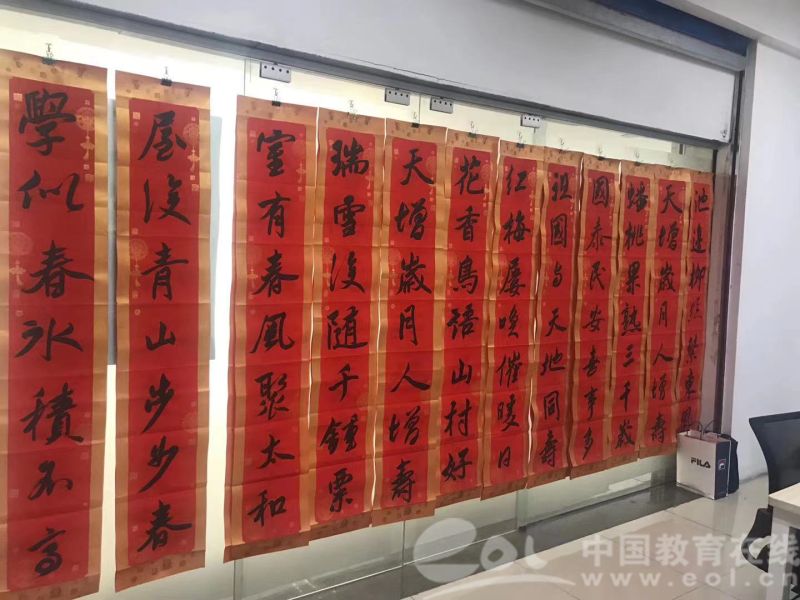 池邊柳絲繫東風
天增歲月人增壽
蟠桃果熟三千歲
國泰民安喜事多
祖國与天地同壽
红梅屢喚催暖日
花香鳥語山村好
天增歲月人增壽
瑞雪後随千鍾粟
室有春風聚太和
屋後青山步步春
學似春氷積不高
FILA
eol 中国教育在线
www.eol.cn